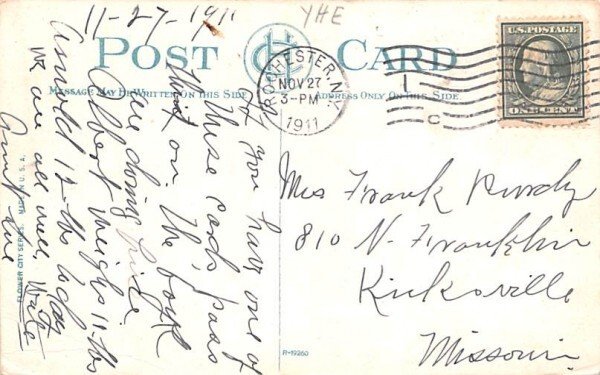 11-27-1911
YHE
POST CARD
MESSAGE MAY BE WRITTEN ON THIS SIDE
ADDRESS ONLY ON THIS SIDE
ROCHESTER, N.Y.
NOV 27
3-PM
1911
1
C
U.S. POSTAGE
ONE CENT
If you have one of
these cards pass
it on. The boys
are doing fine.
Albert weighs 11-lbs
Arnold 12-lbs today
We are all well, Write
Aunt Sue
Mrs Frank Purdy
810 N. Franklin
Kirksville
Missouri
FLOWER CITY SERIES. MADE IN U.S.A.
R-19260